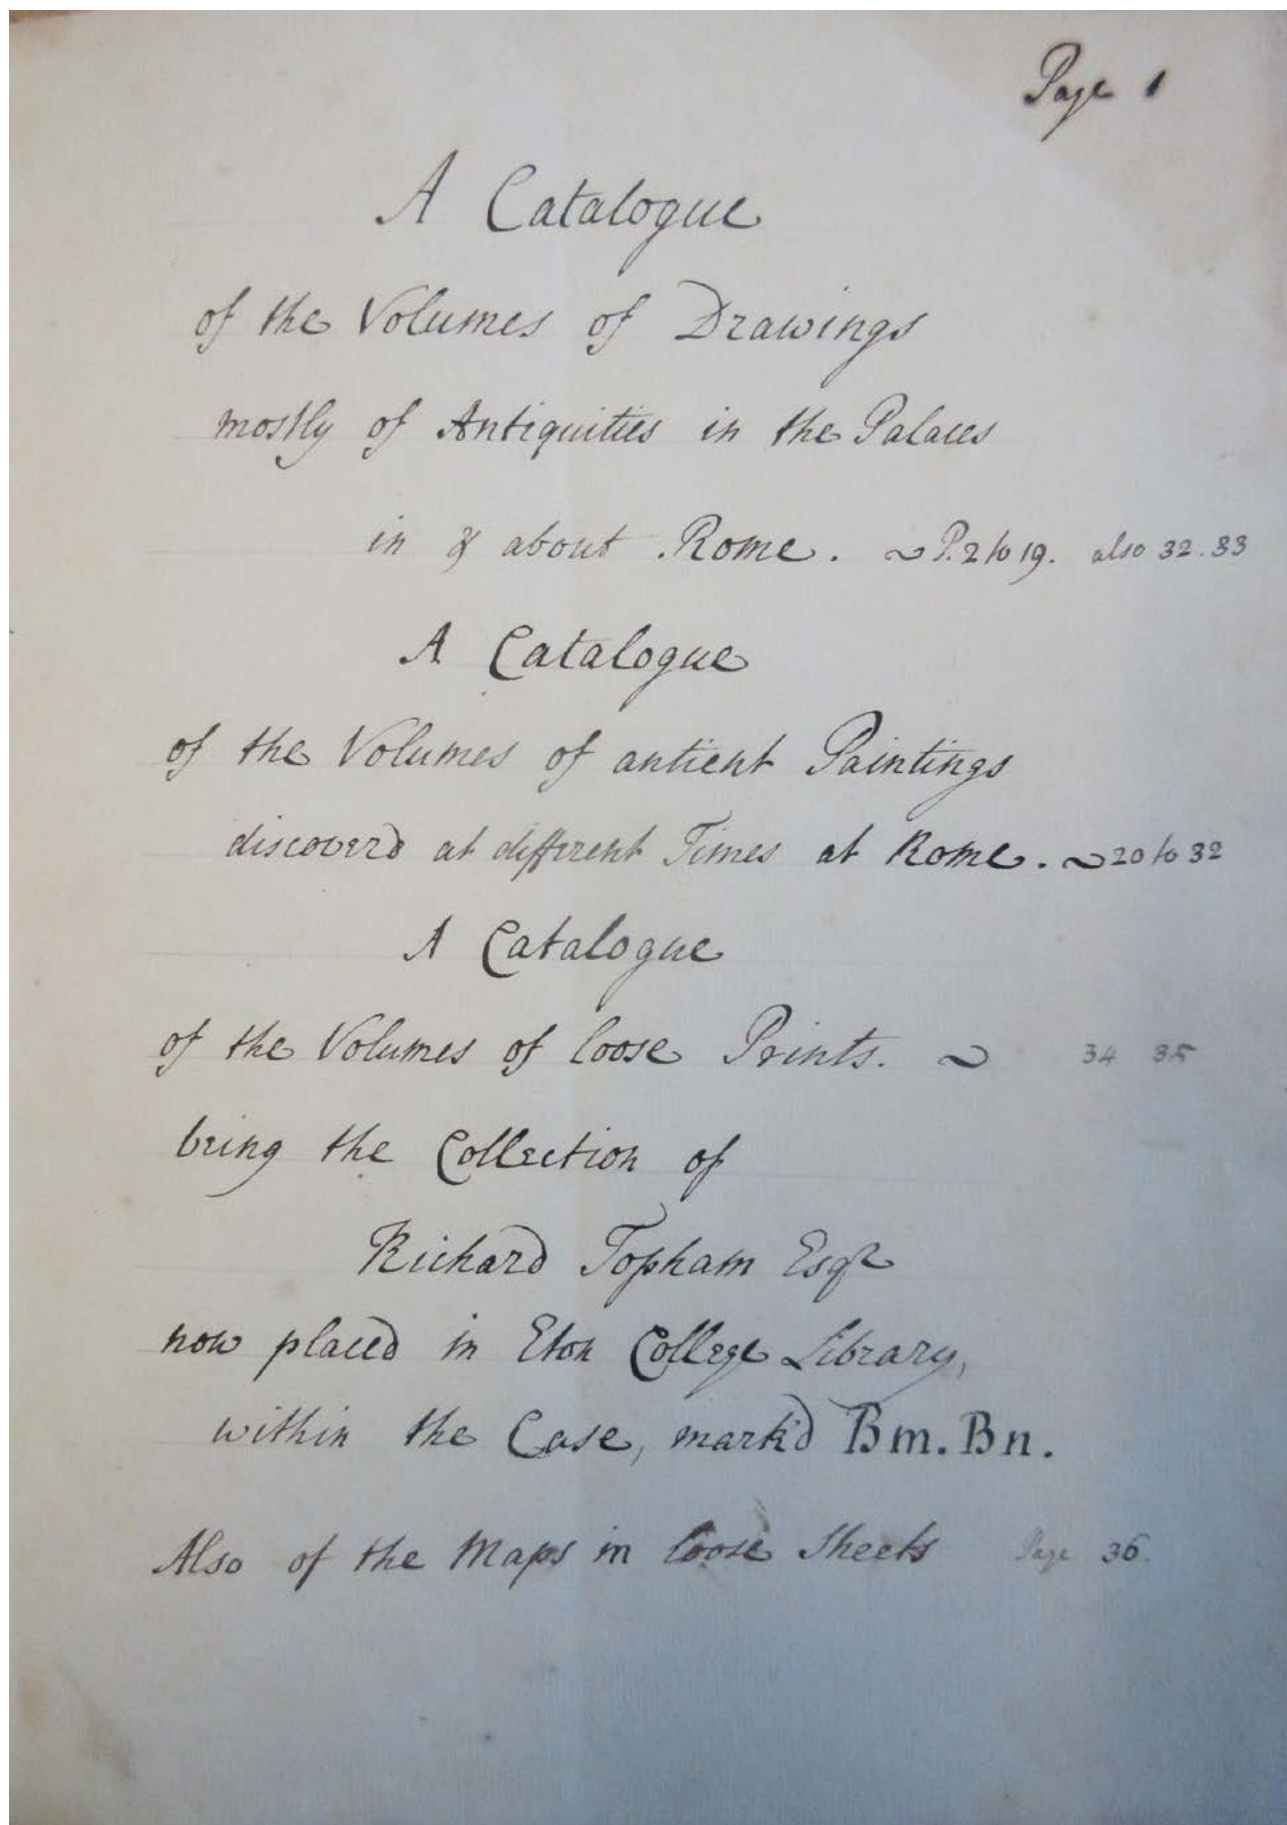 Page 1
A Catalogue
of the Volumes of Drawings
mostly of Antiquities in the Palaces
in & about Rome. ~ P. 2 to 19. also 32. 33
A Catalogue
of the Volumes of antient Paintings
discoverd at different Times at Rome. ~ 20 to 32
A Catalogue
of the Volumes of loose Prints. ~ 34 35
being the Collection of
Richard Topham Esqr
now placed in Eton College Library,
within the Case, mark'd Bm. Bn.
Also of the Maps in loose Sheets Page 36.